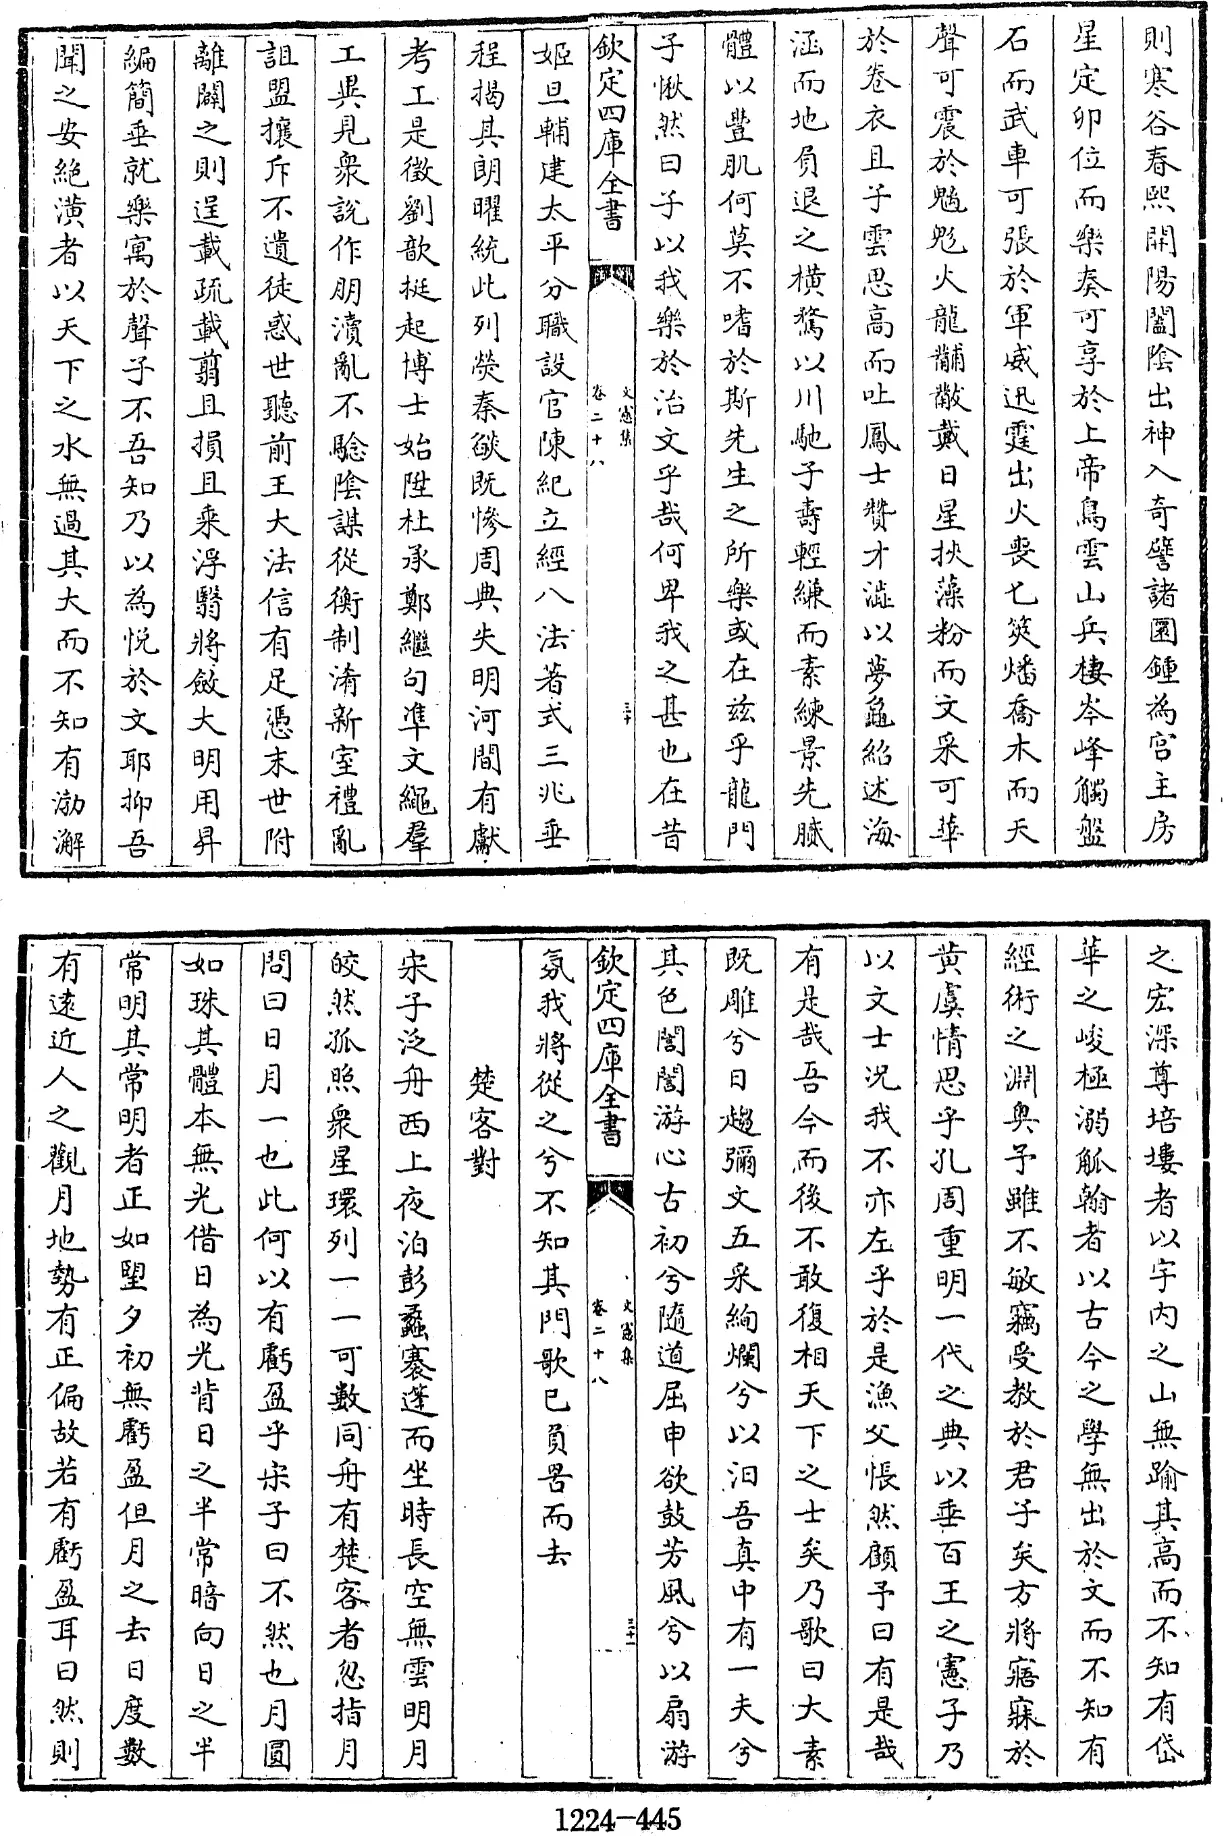 則寒谷春熙開陽闔陰出神入奇譬諸圜鍾為宫主房
星定卯位而樂奏可享於上帝鳥雲山兵棲岑峰觸盤
石而武車可張於軍威迅霆出火喪匕筴燔喬木而天
聲可震於魑魅火龍黼黻戴日星挾藻粉而文采可華
於卷衣且子雲思高而吐鳳士贊才澁以夢龜紹述海
涵而地負退之横騖以川馳子壽輕縑而素練景先膩
體以豐肌何莫不嗜於斯先生之所樂或在兹乎龍門
子愀然曰子以我樂於治文乎哉何卑我之甚也在昔
欽定四庫全書
文憲集
卷二十八
三十
姬旦輔建太平分職設官陳紀立經八法著式三兆垂
程揭其朗曜統此列熒秦燄既慘周典失明河間有獻
考工是徵劉歆挺起博士始陞杜承鄭繼句準文繩羣
工異見衆説作朋瀆亂不驗陰謀從衡制淆新室禮亂
詛盟攘斥不遺徒惑世聽前王大法信有足憑末世附
離闢之則逞載疏載翦且損且乘浮翳將斂大明用昇
編簡垂就樂寓於聲子不吾知乃以為悦於文耶抑吾
聞之安絶潢者以天下之水無過其大而不知有渤澥
之宏深尊培塿者以宇内之山無踰其高而不知有岱
華之峻極溺觚翰者以古今之學無出於文而不知有
經術之淵奥予雖不敏竊受教於君子矣方將寤寐於
黄虞情思乎孔周重明一代之典以垂百王之憲子乃
以文士况我不亦左乎於是漁父悵然顧予曰有是哉
有是哉吾今而後不敢復相天下之士矣乃歌曰大素
既雕兮日趨彌文五采絢爛兮以汩吾真中有一夫兮
其色誾誾游心古初兮隨道屈申欲鼓芳風兮以扇游
欽定四庫全書
文憲集
卷二十八
三十一
氛我將從之兮不知其門歌已負罟而去
楚客對
宋子泛舟西上夜泊彭蠡褰蓬而坐時長空無雲明月
皎然孤照衆星環列一一可數同舟有楚客者忽指月
問曰日月一也此何以有虧盈乎宋子曰不然也月圓
如珠其體本無光借日為光背日之半常暗向日之半
常明其常明者正如望夕初無虧盈但月之去日度數
有逺近人之觀月地勢有正偏故若有虧盈耳曰然則
1224-445